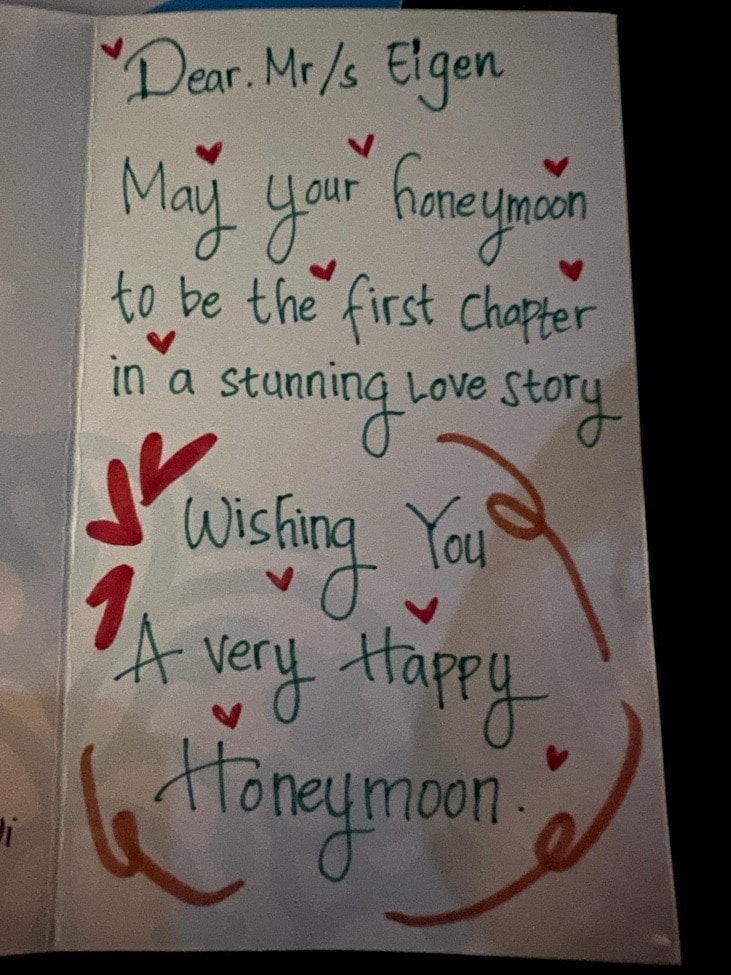 Dear. Mr/s Eigen
May your honeymoon
to be the first chapter
in a stunning Love story
Wishing You
A very Happy
Honeymoon.